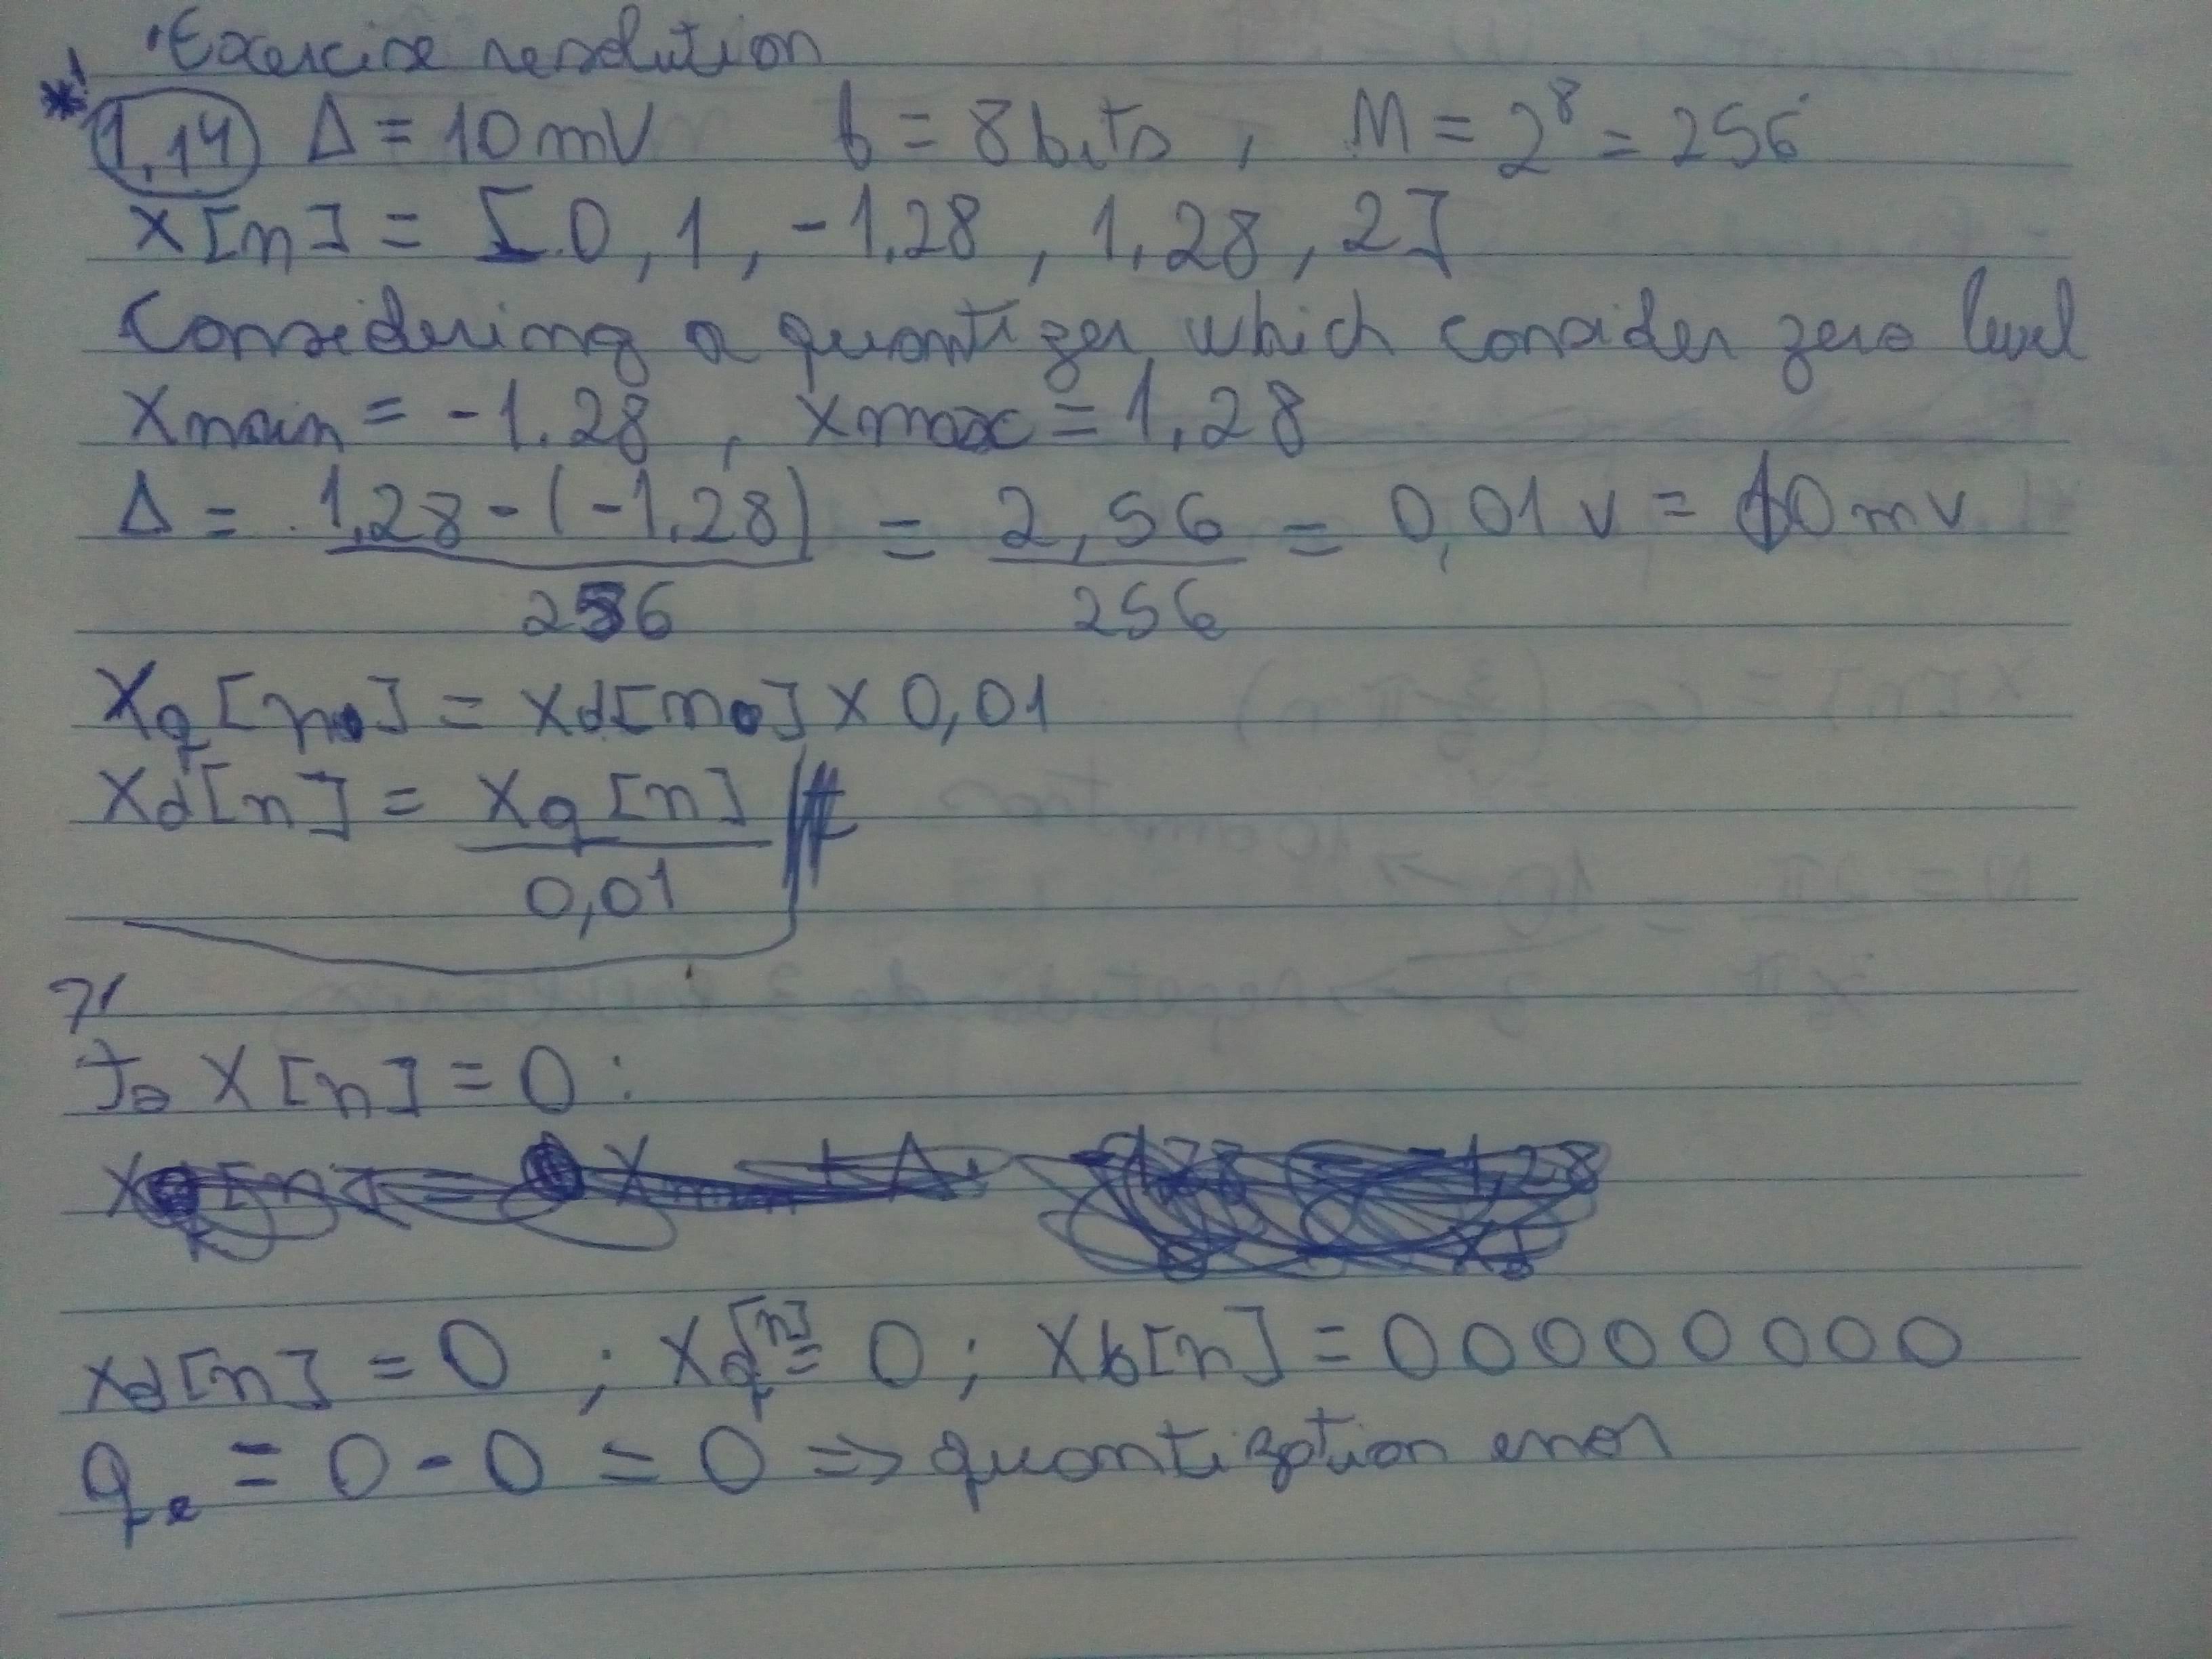 Exercise resolution
*1 1,14 Δ = 10 mV b = 8 bits, M = 2⁸ = 256
x[n] = [0, 1, -1,28, 1,28, 2]
Considering a quantizer which consider zero level
Xmin = -1.28, xmax = 1,28
Δ = 1,28 - (-1,28) / 256 = 2,56 / 256 = 0,01 v = 10 mv
Xq[n] = xd[n] x 0,01
Xd[n] = Xq[n] / 0,01 #
To X[n] = 0:
Xd[n] = 0 ; Xq[n] = 0 ; Xb[n] = 00000000
qe = 0 - 0 = 0 => quantization error